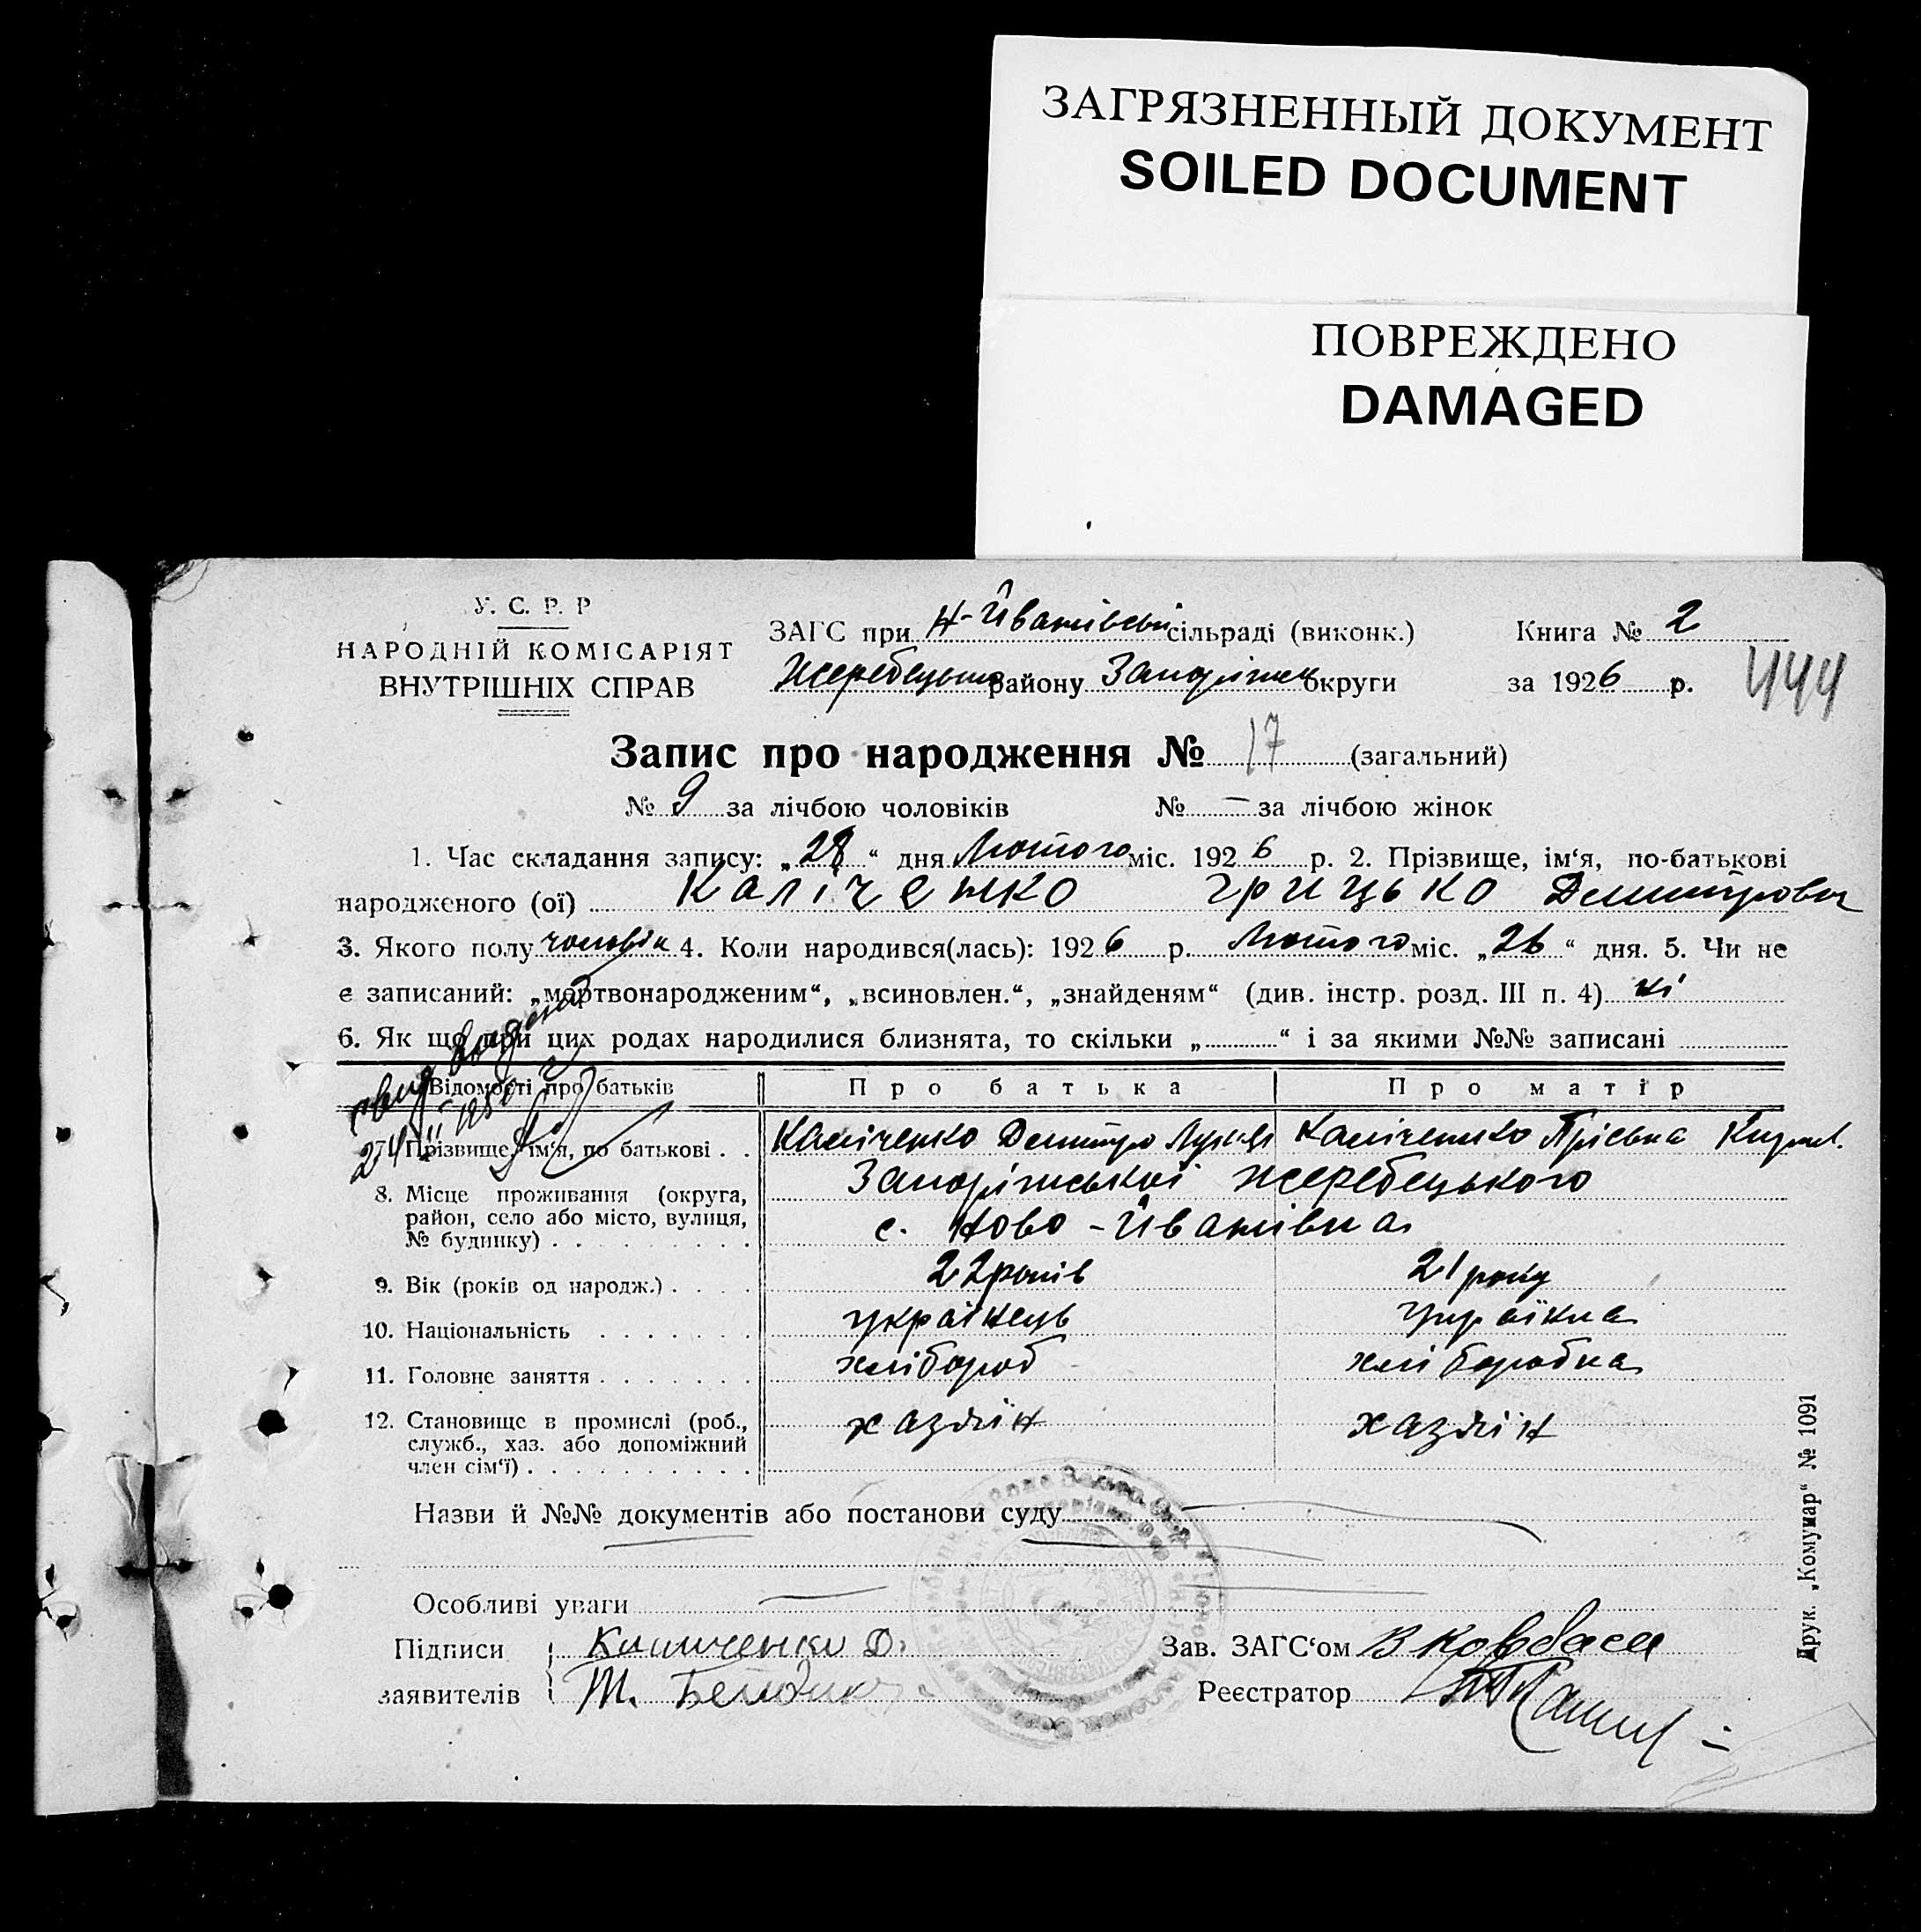 ЗАГРЯЗНЕННЫЙ ДОКУМЕНТ
SOILED DOCUMENT
ПОВРЕЖДЕНО
DAMAGED
У. С. Р. Р
НАРОДНІЙ КОМІСАРІЯТ
ВНУТРІШНІХ СПРАВ
ЗАГС при Н-Йванівській сільраді (виконк.)
Жеребецьк району Запоріжськ округи
Книга № 2
за 1926 р.
444
Запис про народження № 17 (загальний)
№ 9 за лічбою чоловіків № — за лічбою жінок
1. Час складання запису: „28“ дня Лютого міс. 1926 р. 2. Прізвище, ім‘я, по-батькові
народженого (ої) Каліченко Грицько Демитрович
3. Якого полу чоловік 4. Коли народився(лась): 1926 р. Лютого міс. „26“ дня. 5. Чи не
є записаний: „мертвонародженим“, „всиновлен.“, „знайденям“ (див. інстр. розд. III п. 4) ні
6. Як що при цих родах народилися близнята, то скільки „ “ і за якими №№ записані
Відомості про батьків Про батька Про матір
7. Прізвище, ім‘я, по батькові . . Каліченко Демитро Каліченко Прісьна
8. Місце проживання (округа, Запоріжської Жеребецького
район, село або місто, вулиця, с. Ново-Йванівка
№ будинку)
9. Вік (років од народж.) 22 років 21 року
10. Національність українець українка
11. Головне заняття хлібороб хліборобка
12. Становище в промислі (роб., хазяїн хазяїн
служб., хаз. або допоміжний
член сім‘ї)
Назви й №№ документів або постанови суду
Особливі уваги
Підписи Каличенко Д. Зав. ЗАГС‘ом В Ковбаса
заявителів Т. Реєстратор
Друк. „Комунар“ № 1091